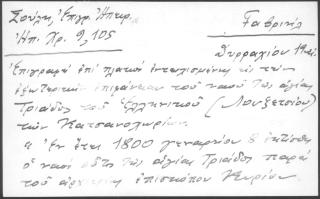 Σούλη, Ἐπιγρ. Ἠπειρ. Γαβριήλ
Ἠπ. Χρ. 9, 105
Δυρραχίου
Ἐπιγραφὴ ἐπὶ πλακὸς ἐντετοιχισμένης εἰς τὴν
ἐξωτερικὴν ἐπιφάνειαν τοῦ ναοῦ τῆς ἁγίας
Τριάδος τοῦ Ἑλληνικοῦ (Λοζετσίου)
τῶν Κατσανοχωρίων.
ἐν ἔτει 1800 γεναρίου 8 ἐκτίσθη
ὁ ναὸς οὗτος τῆς ἁγίας Τριάδος παρὰ
τοῦ ἐπισκόπου κυρίου